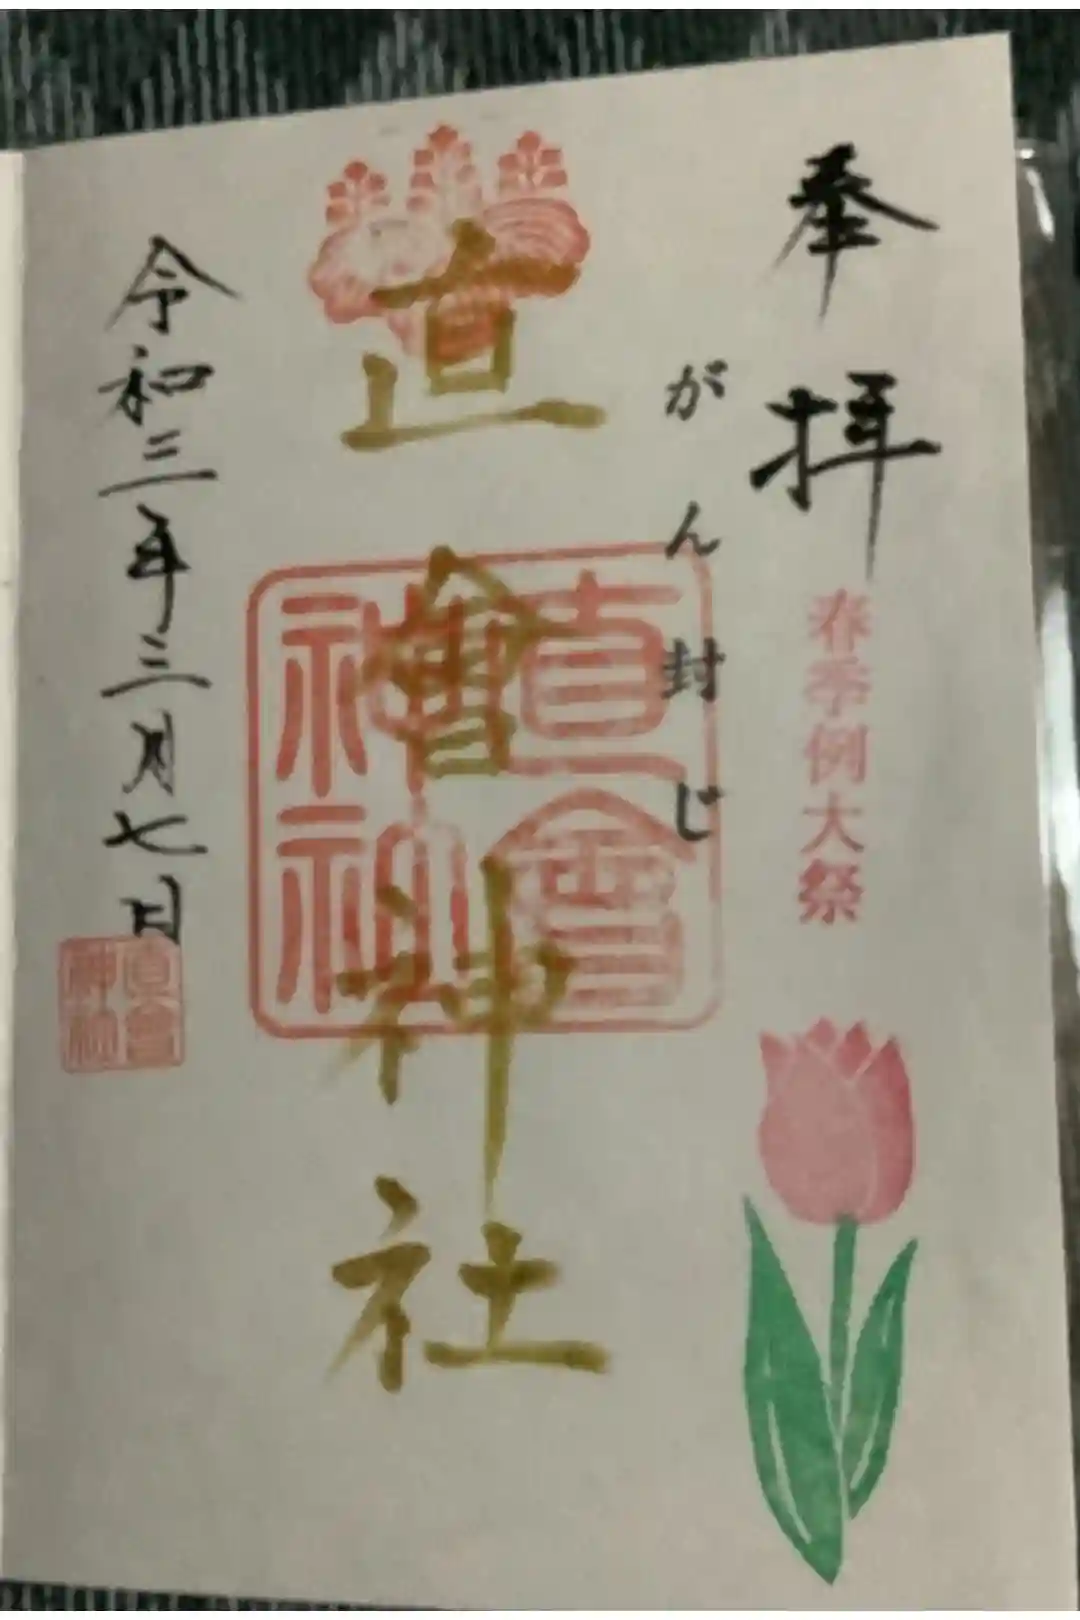 奉拝
春季例大祭
がん封じ
直會神社
直會神社
令和三年三月七日
直會神社